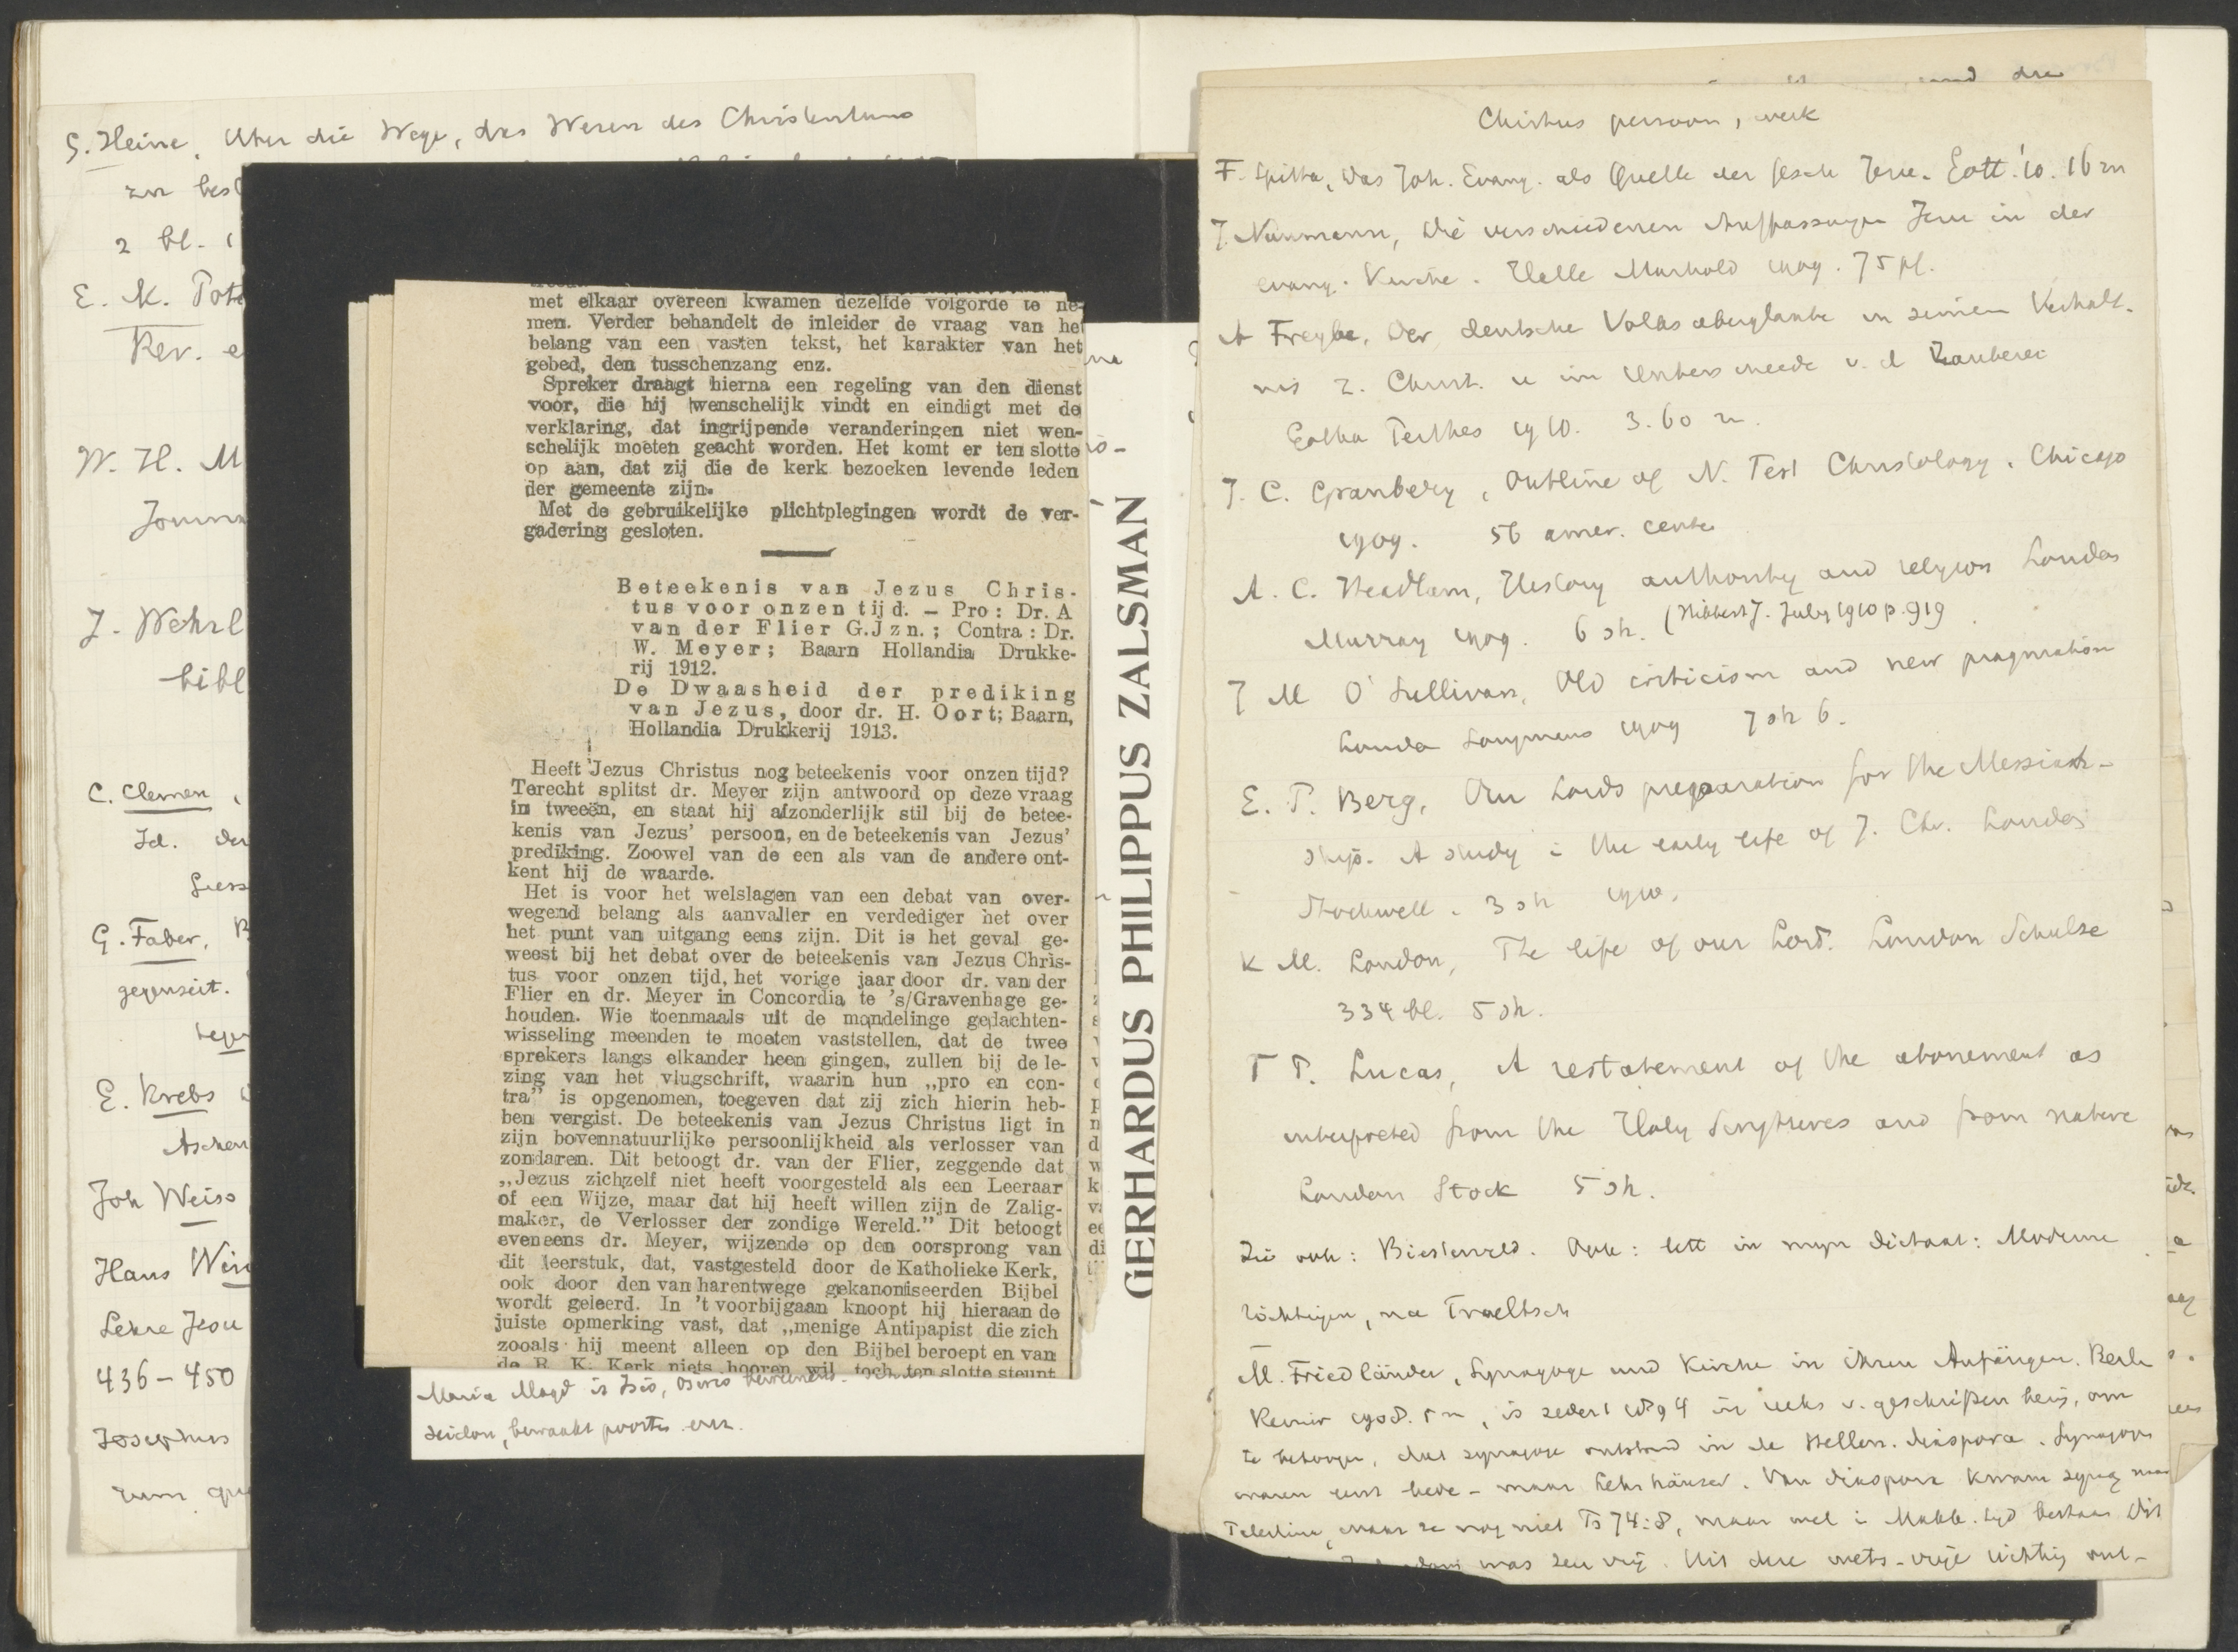 G. Heine, Uber die Wege, das Wesen des Christentums
zu best
2 bl.
E. K. Pote
Rev. e
W. H. M
Journ
J. Wehrl
bibl
C. Clemen,
Id. der
Giess
G. Faber, B
gegenseit.
E. Krebs
Aschen
Joh Weiss
Hans Win
Lehre Jesu
436-450
Josephus
zum que
met elkaar overeen kwamen dezelfde volgorde te ne-
men. Verder behandelt de inleider de vraag van het
belang van een vasten tekst, het karakter van het
gebed, den tusschenzang enz.
Spreker draagt hierna een regeling van den dienst
voor, die hij wenschelijk vindt en eindigt met de
verklaring, dat ingrijpende veranderingen niet wen-
schelijk moeten geacht worden. Het komt er ten slotte
op aan, dat zij die de kerk bezoeken levende leden
der gemeente zijn.
Met de gebruikelijke plichtplegingen wordt de ver-
gadering gesloten.
Beteekenis van Jezus Chris-
tus voor onzen tijd. — Pro: Dr. A
van der Flier G.Jzn.; Contra: Dr.
W. Meyer; Baarn Hollandia Drukke-
rij 1912.
De Dwaasheid der prediking
van Jezus, door dr. H. Oort; Baarn,
Hollandia Drukkerij 1913.
Heeft Jezus Christus nog beteekenis voor onzen tijd?
Terecht splitst dr. Meyer zijn antwoord op deze vraag
in tweeën, en staat hij afzonderlijk stil bij de betee-
kenis van Jezus' persoon, en de beteekenis van Jezus'
prediking. Zoowel van de een als van de andere ont-
kent hij de waarde.
Het is voor het welslagen van een debat van over-
wegend belang als aanvaller en verdediger het over
het punt van uitgang eens zijn. Dit is het geval ge-
weest bij het debat over de beteekenis van Jezus Chris-
tus voor onzen tijd, het vorige jaar door dr. van der
Flier en dr. Meyer in Concordia te 's/Gravenhage ge-
houden. Wie toenmaals uit de mondelinge gedachten-
wisseling meenden te moeten vaststellen, dat de twee
sprekers langs elkander heen gingen, zullen bij de le-
zing van het vlugschrift, waarin hun „pro en con-
tra” is opgenomen, toegeven dat zij zich hierin heb-
ben vergist. De beteekenis van Jezus Christus ligt in
zijn bovennatuurlijke persoonlijkheid als verlosser van
zondaren. Dit betoogt dr. van der Flier, zeggende dat
„Jezus zichzelf niet heeft voorgesteld als een Leeraar
of een Wijze, maar dat hij heeft willen zijn de Zalig-
maker, de Verlosser der zondige Wereld.” Dit betoogt
eveneens dr. Meyer, wijzende op den oorsprong van
dit leerstuk, dat, vastgesteld door de Katholieke Kerk,
ook door den van harentwege gekanoniseerden Bijbel
wordt geleerd. In 't voorbijgaan knoopt hij hieraan de
juiste opmerking vast, dat „menige Antipapist die zich
zooals hij meent alleen op den Bijbel beroept en van
de R. K. Kerk niets hooren wil, toch ten slotte steunt
Maria Magd is Isis, Osiris
bewaakt poorten enz.
GERHARDUS PHILIPPUS ZALSMAN
Christus persoon, werk
F. Spitta, Das Joh. Evang. als Quelle der Gesch Jesu. Gött. '10. 16 m
J. Naumann, Die verschiedenen Auffassungen Jesu in der
evang. Kirche. Halle Marhold 1909. 75 pf.
A Freybe, Der deutsche Volksaberglaube in seinem Verhält-
nis z. Christ. u im Unterschiede v. d Zauberei
Gotha Perthes 1910. 3.60 m.
J. C. Granbery, Outline of N. Test Christology. Chicago
1909. 56 amer. cents
A. C. Headlam, History authority and religion London
Murray 1909. 6 sh. (Hibbert J. July 1910 p. 919
J M O'Sullivan, Old criticism and new pragmatism
London Longmans 1909 7 sh 6.
E. P. Berg, Our Lords preparation for the Messiah-
ship. A study i the early life of J. Chr. London
Stockwell. 3 sh 1910.
K M. London, The life of our Lord. London Schulze
334 bl. 5 sh.
T T. Lucas, A restatement of the atonement as
interpreted from the Holy Scriptures and from nature
London Stock 5 sh.
Zie ook: Biesterveld. Ook: lett in mijn dictaat: Moderne
richtingen, na Troeltsch
M. Friedländer, Synagoge und Kirche in ihren Anfängen. Berlin
Reimer 1908. 5 m, is sedert 1894 in reeks v. geschriften bezig, om
te betoogen, dat synagoge ontstond in de Hellen. diaspora. Synagogen
waren eerst bede- maar Lehrhäuser. Van diaspora kwam synag naar
Palestina, maar ze nog niet Ps 74:8, maar wel i Makk. tijd bestaan Dit
was zeer vrij. Uit deze wets-vrije richting ont-